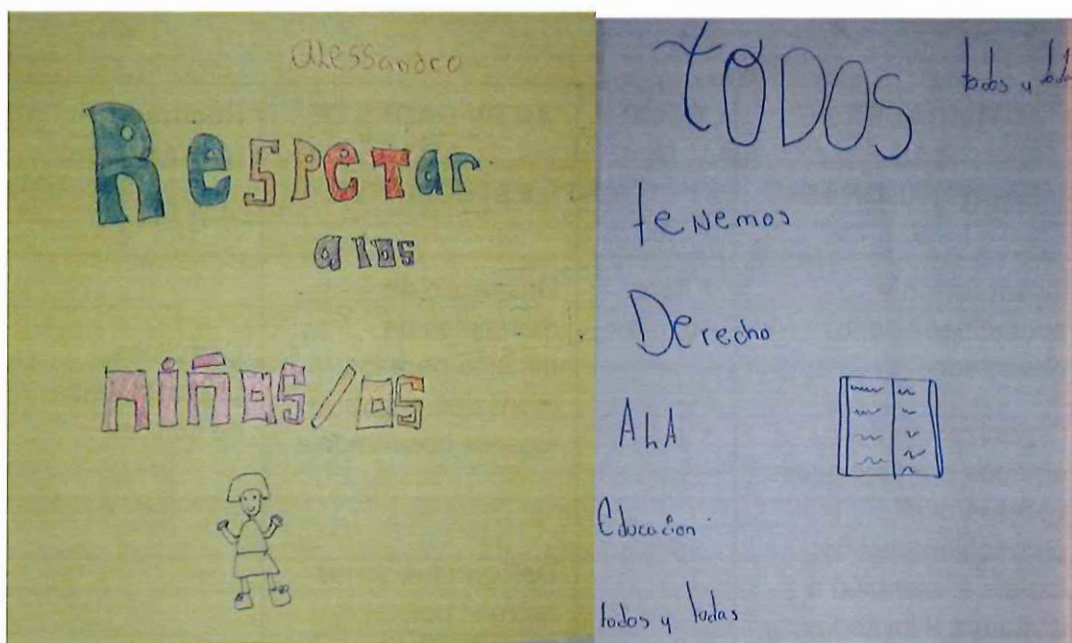 Alessandro
Respetar
a los
niñas/os
TODOS
todos y todas
tenemos
Derecho
A LA
Educacion
todos y todas